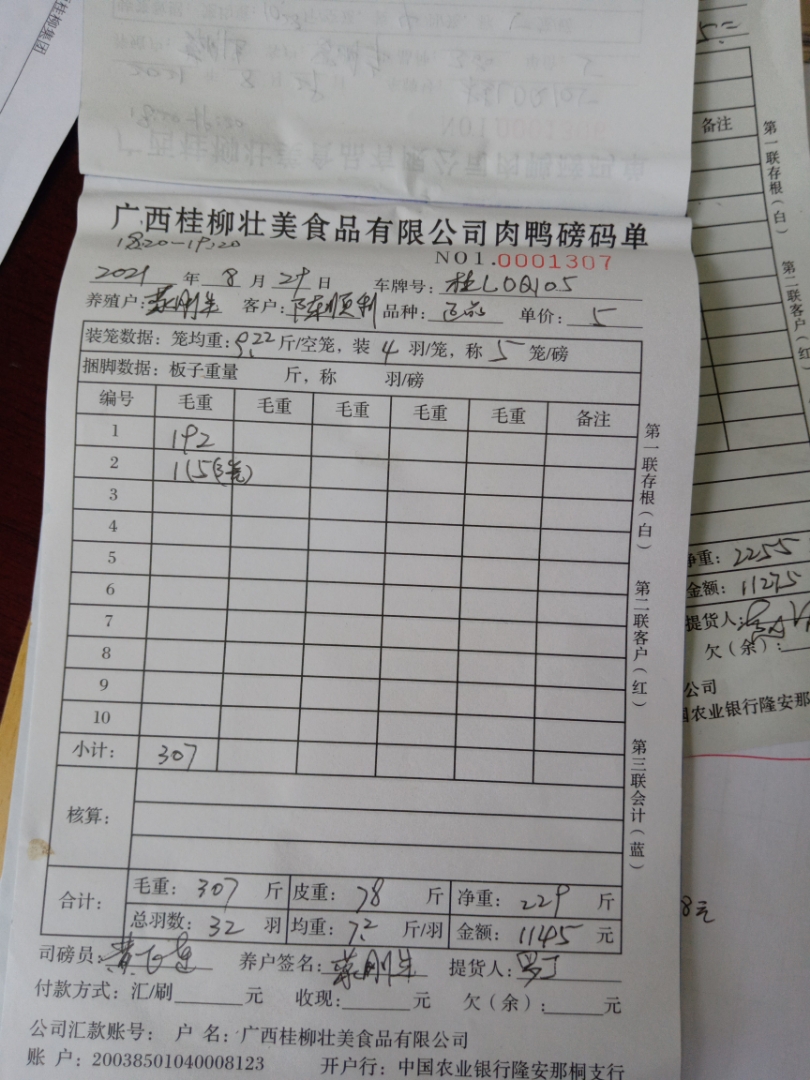 桂柳集团
广西桂柳壮美食品有限公司肉鸭磅码单
18:20-19:20
NO1.0001307
2021 年 8 月 29 日 车牌号: 桂L0Q105
养殖户: 客户: 陈顺利 品种: 单价: 5
装笼数据: 笼均重: 9.22 斤/空笼, 装 4 羽/笼, 称 5 笼/磅
捆脚数据: 板子重量 斤, 称 羽/磅
编号 毛重 毛重 毛重 毛重 毛重 备注
1 192
2 115(3笼)
3
4
5
6
7
8
9
10
小计: 307
核算:
合计: 毛重: 307 斤 皮重: 78 斤 净重: 229 斤
总羽数: 32 羽 均重: 7.2 斤/羽 金额: 1145 元
司磅员: 养户签名: 提货人:
付款方式: 汇/刷 元 收现: 元 欠(余): 元
公司汇款账号: 户 名: 广西桂柳壮美食品有限公司
账 户: 20038501040008123 开户行: 中国农业银行隆安那桐支行
第一联存根(白)
第二联客户(红)
第三联会计(蓝)
备注
第一联存根(白)
第二联客户(红)
净重: 2255
金额: 11275
提货人:
欠(余):
公司
国农业银行隆安那
8元